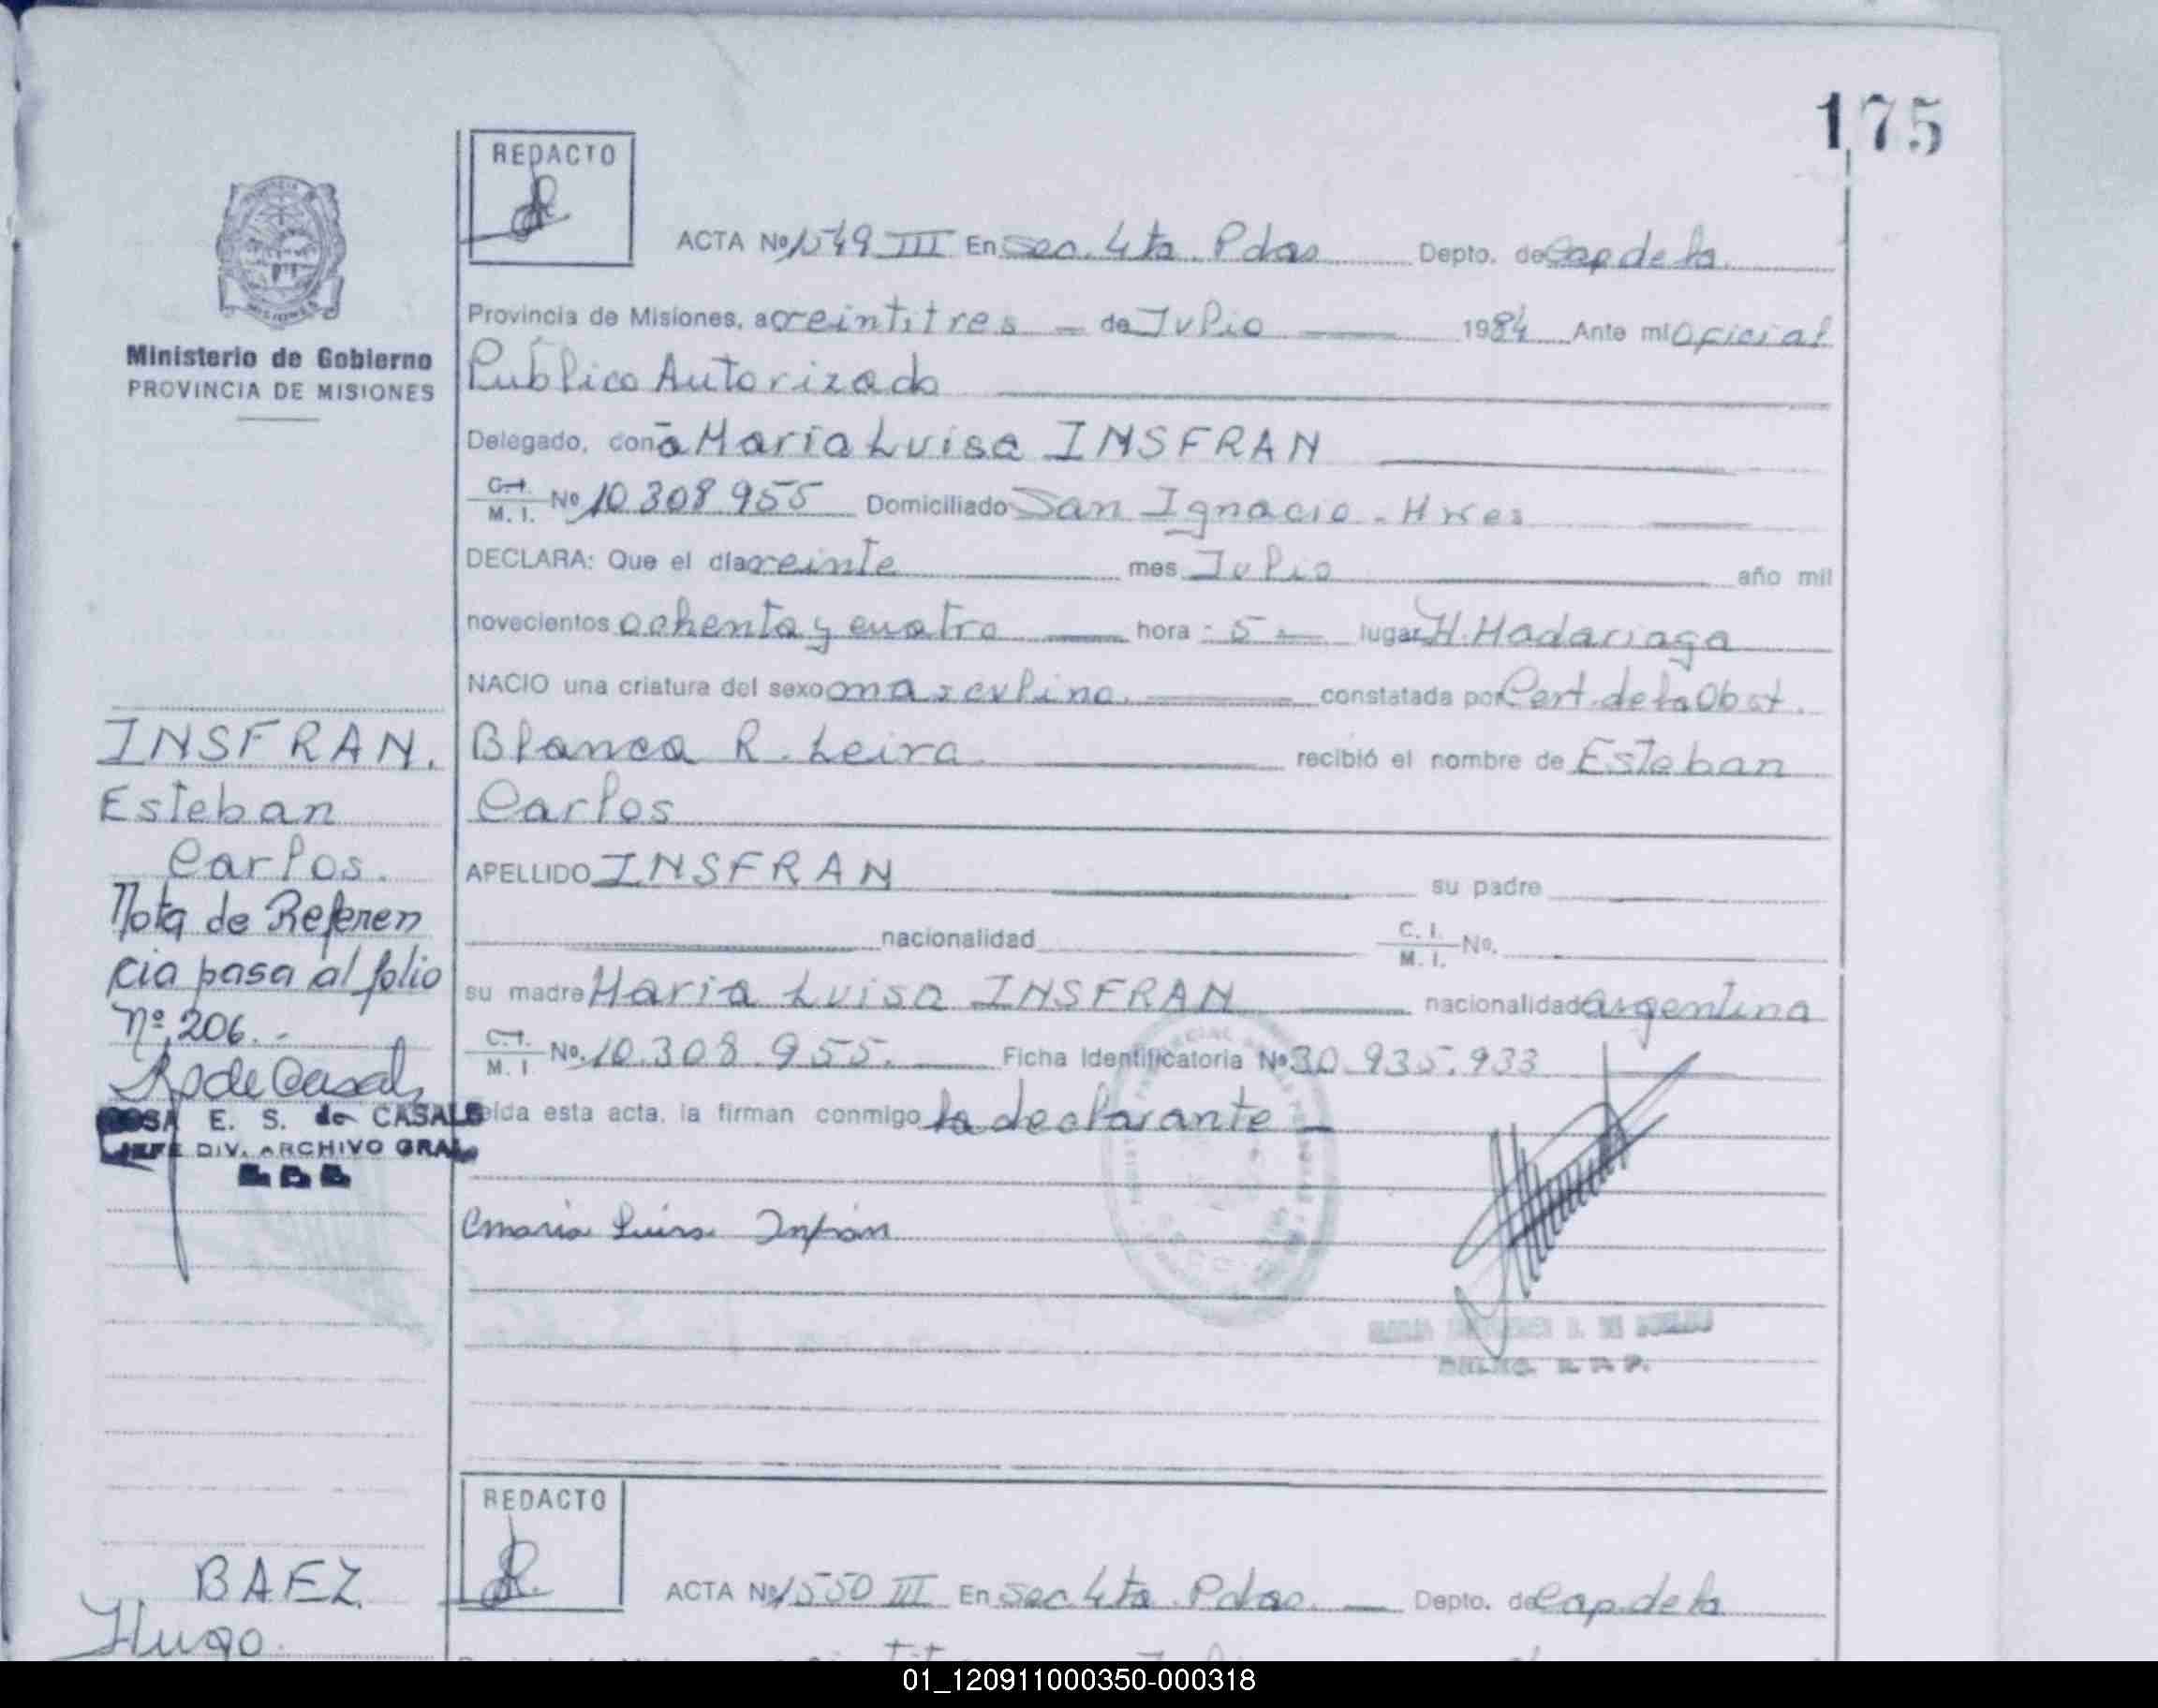 175
REDACTO
ACTA Nº 1549 III En Sec. 4ta. Pdas Depto. de Cap de la
Provincia de Misiones, a veintitres — de Julio — 1984 Ante mi Oficial
Ministerio de Gobierno
PROVINCIA DE MISIONES
Público Autorizado
Delegado, con a Maria Luisa INSFRAN
C.I. M. I. Nº 10.308.955 Domiciliado San Ignacio - Mnes
DECLARA: Que el día veinte mes Julio año mil
novecientos ochenta y cuatro hora - 5 - lugar H. Madariaga
NACIO una criatura del sexo masculino. constatada por Cert. de la Obst.
Blanca R. Leira recibió el nombre de Esteban
Carlos
APELLIDO INSFRAN su padre
nacionalidad C. I. M. I. Nº.
su madre Maria Luisa INSFRAN nacionalidad argentina
C.I. M. I Nº. 10.308.955. Ficha Identificatoria Nº 30.935.933
Leída esta acta, la firman conmigo la declarante —
Maria Luisa Insfrán
INSFRAN.
Esteban
Carlos.
Nota de Referen
cia pasa al folio
nº 206.-
R de Casals
ROSA E. S. de CASALS
JEFE DIV. ARCHIVO GRAL
REDACTO
ACTA Nº 1550 III En Sec 4ta. Pdas. — Depto. de Cap. de la
BAEZ
Hugo.
01_120911000350-000318